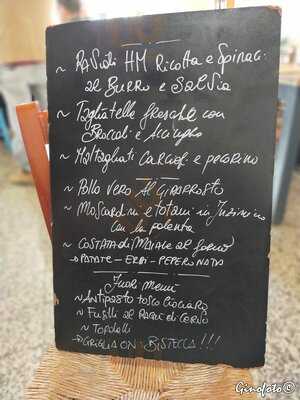 ~ Ravioli HM Ricotta e Spinaci
al Burro e Salvia
~ Tagliatelle fresche con
Broccoli e Acciughe
~ Maltagliati Carciofi e pecorino
~ Pollo vero Al Girarrosto
~ Moscardini e totani in Inzimino
con la polenta
~ Costata di Maiale al forno
→ Patate - Erbi - Peperonata
Fuori Menù
~ Antipasto tosco ciociaro
~ Fusilli al Ragù di Cervo
~ Tordelli
→ Griglia on Bistecca!!!
Ginofoto©